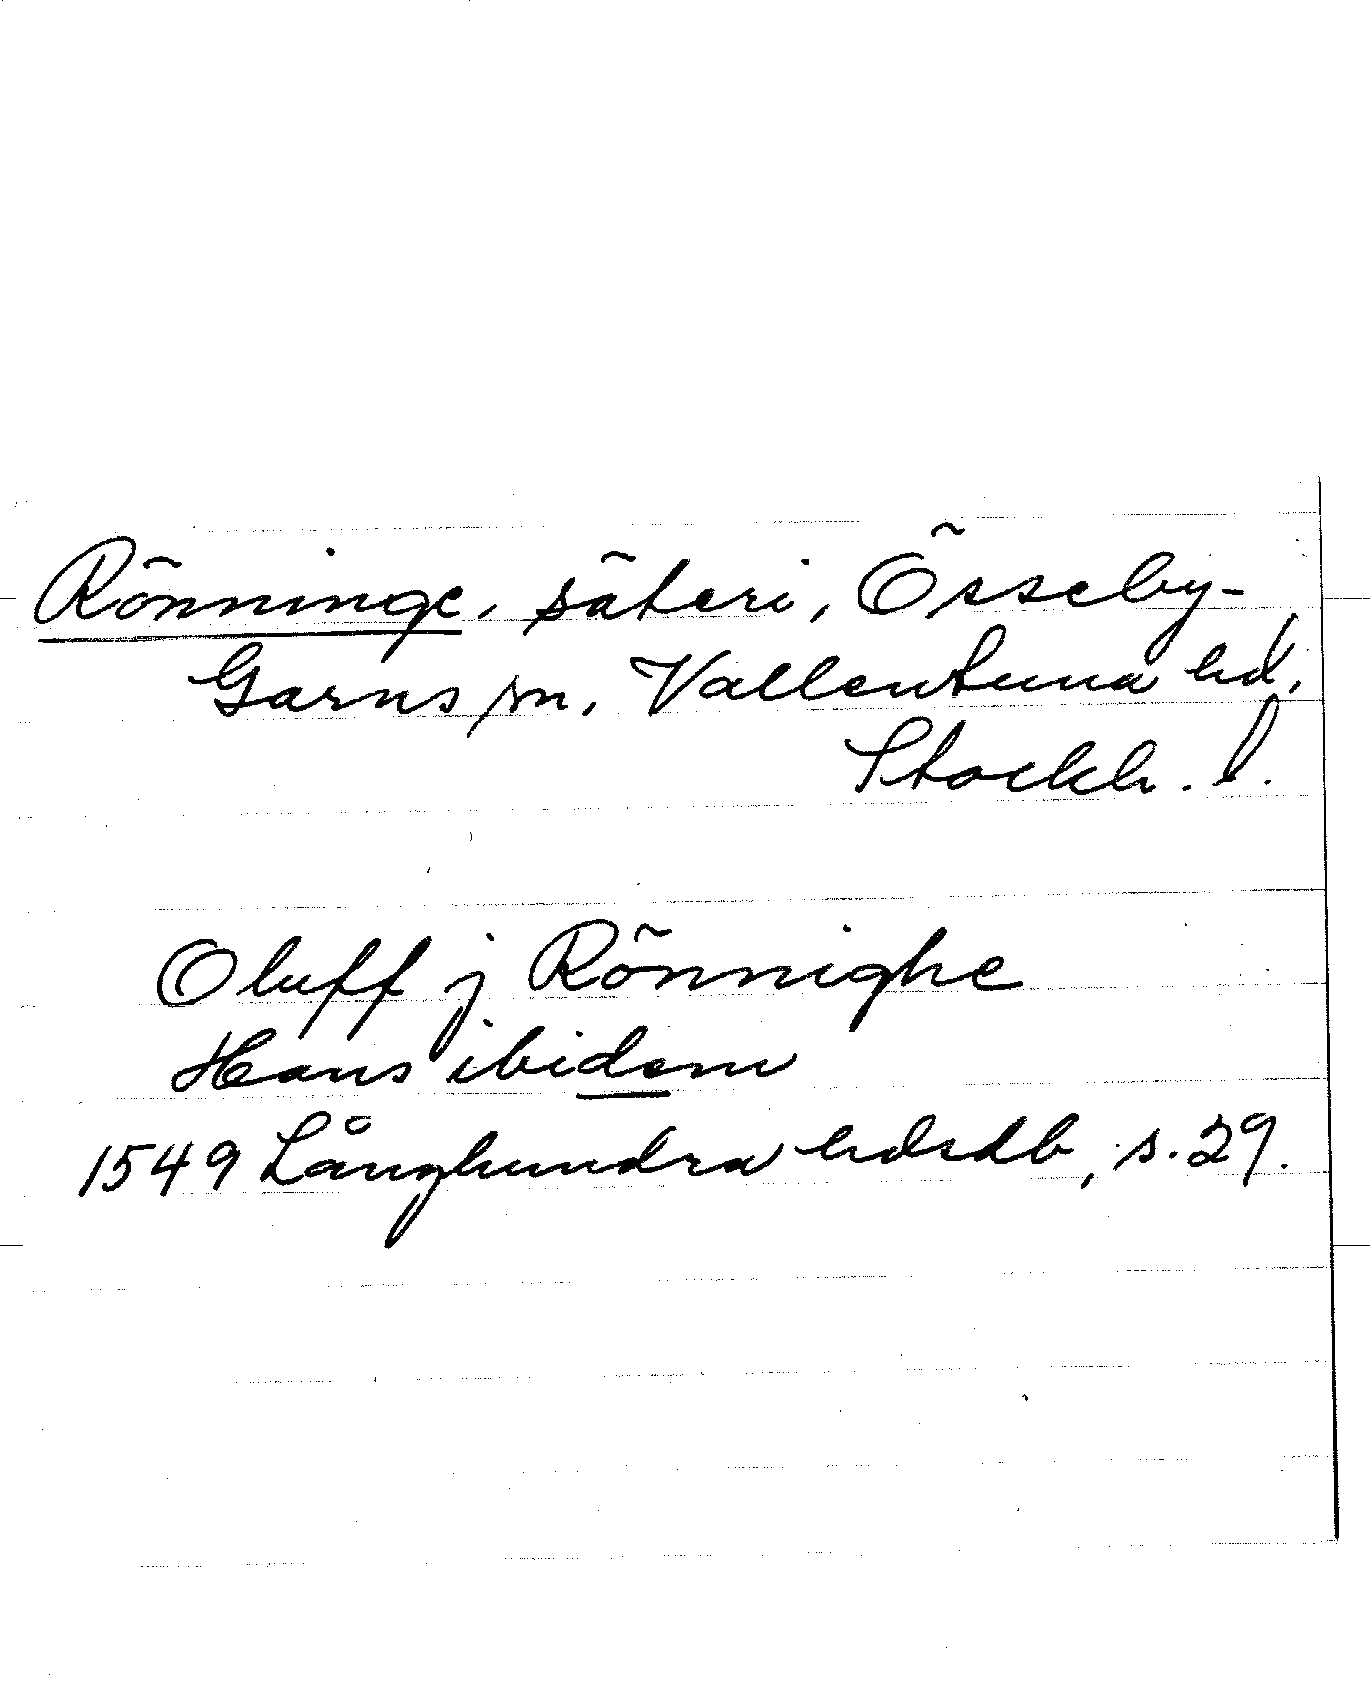 Rönninge, säteri, Össeby-
Garns sn, Vallentuna hd,
Stockh. l.
Oluff j Rönnighe
Hans ibidem
1549 Långhundra hdsdb, s. 29.